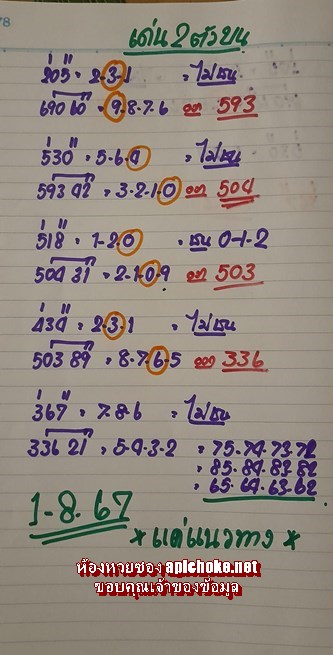 78
เด่น 2 ตัวบน
205 = 2-3-1 = ไม่ชน
690 60 = 9.8.7.6 ออก 593
530 = 5-6-4 = ไม่ชน
593 42 = 3-2-1-0 ออก 504
518 = 1-2-0 = ชน 0-1-2
504 31 = 2-1-0-9 ออก 503
434 = 2-3-1 = ไม่ชน
503 89 = 8-7-6-5 ออก 336
367 = 7-8-6 = ไม่ชน
336 21 = 5-4-3-2 = 75-74-73-72
= 85-84-83-82
= 65-64-63-62
1-8-67
*แค่แนวทาง*
ห้องหวยซอง apichoke.net
ขอบคุณเจ้าของข้อมูล